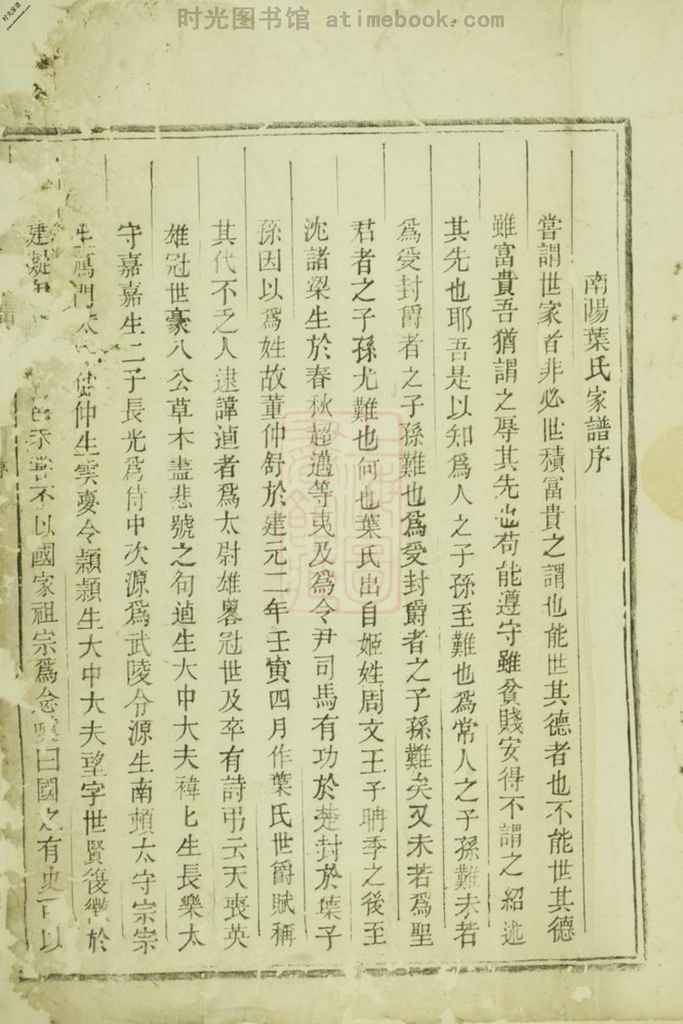 时光图书馆 atimebook.com
南陽葉氏家譜序
嘗謂世家者非必世積富貴之謂也能世其德者也不能世其德
雖富貴吾猶謂之辱其先也苟能遵守雖貧賤安得不謂之紹述
其先也耶吾是以知爲人之子孫至難也爲常人之子孫難未若
爲受封爵者之子孫難也爲受封爵者之子孫難矣又未若爲聖
君者之子孫尤難也何也葉氏出自姬姓周文王子聃季之後至
沈諸梁生於春秋超邁等夷及爲令尹司馬有功於楚封於葉子
孫因以爲姓故董仲舒於建元二年壬寅四月作葉氏世爵賦稱
其代不乏人逮諱逌者爲太尉雄畧冠世及卒有詩弔云天喪英
雄冠世豪八公草木盡悲號之句逌生大中大夫禕匕生長樂太
守嘉嘉生二子長光爲侍中次源爲武陵令源生南頓太守宗宗
生鴈門太 仲生雲夢令顥顥生大中大夫望字世賢後 於
建 不以國家祖宗爲念 曰國之有史 以